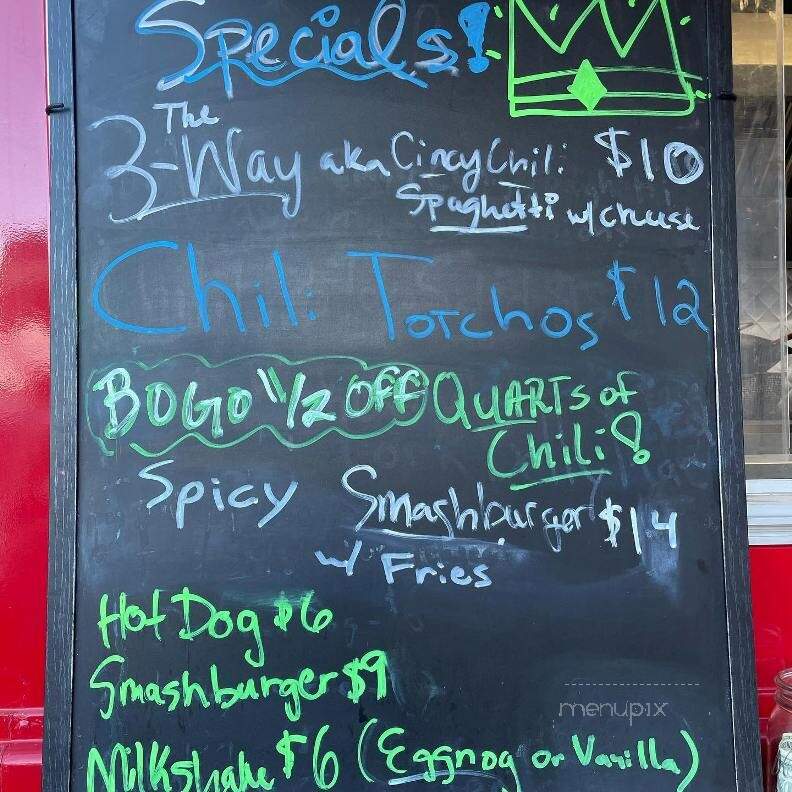 Specials!
The
3-Way aka Cincy Chili $10
Spaghetti w/ cheese
Chili Torchos $12
BOGO 1/2 OFF QUARTS of
Chili!
Spicy Smashburger $14
w/ Fries
Hot Dog $6
Smashburger $9
menupix
Milkshake $6 (Eggnog or Vanilla)